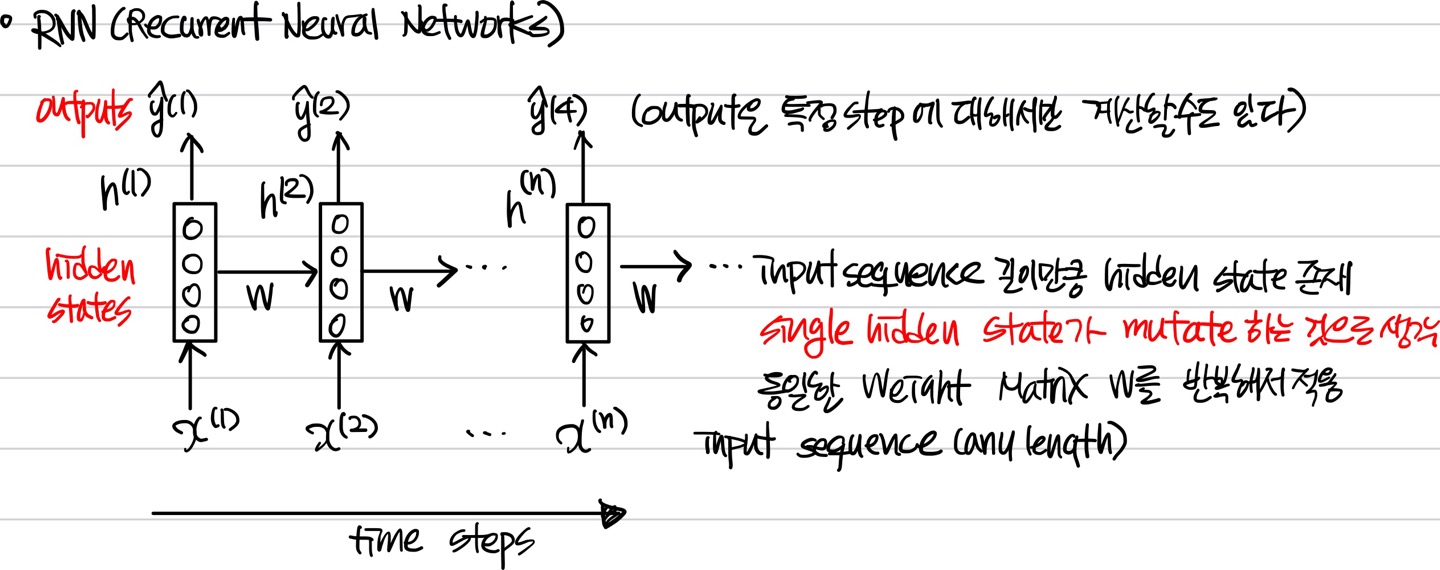 • RNN (Recurrent Neural Networks)
outputs ŷ(1) ŷ(2) ŷ(4) (output은 특정 step에 대해서만 계산할수도 있다)
h(1) h(2) h(n)
hidden states
W W W
... ... input sequence 길이만큼 hidden state 존재
single hidden state가 mutate 하는 것으로 생각
동일한 Weight Matrix W를 반복해서 적용
x(1) x(2) ... x(n) input sequence (any length)
time steps